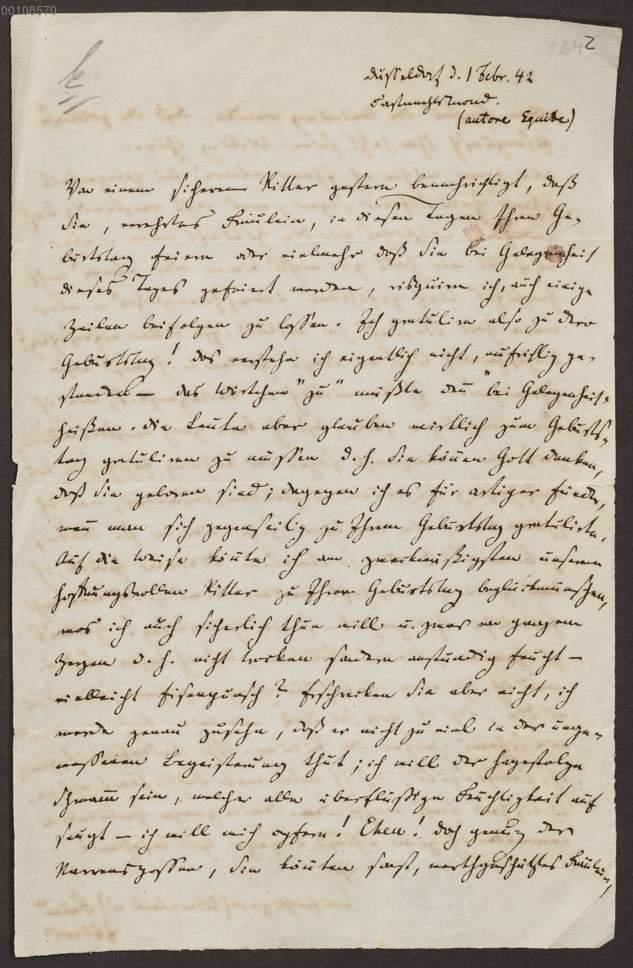 00108570
1842
Düsseldorf d. 1 Febr. 42
Fastnachtsmond.
(autore Equite)
Von einem sicheren Ritter gestern benachrichtigt, daß
Sie, verehrtes Fräulein, in diesen Tagen Ihren Ge-
burtstag feiern oder vielmehr daß Sie bei Gelegenheit
dieses Tages gefeiert werden, risquire ich, auch einige
Zeilen beifolgen zu lassen. Ich gratulire also zu dero
Geburtstag! das verstehe ich eigentlich nicht, aufrichtig ge-
standen — das Wörtchen "zu" müßte denn "bei Gelegenheit"
heißen. die Leute aber glauben wirklich zum Geburts-
tag gratuliren zu müssen d. h. Sie können Gott danken,
daß Sie geboren sind; dagegen ich es für artiger finde,
wenn man sich gegenseitig zu Ihrem Geburtstag gratulirte.
Auf die Weise könnte ich am zweckmäßigsten unserem
hoffnungsvollen Ritter zu Ihrem Geburtstag beglückwünschen,
was ich auch sicherlich thun will u. zwar von ganzem
Herzen d. h. nicht trocken sondern anständig feucht —
vielleicht Eisenpunsch? Erschrecken Sie aber nicht, ich
werde genau zusehn, daß er nicht zu viel in der unge-
messenen Begeisterung thut; ich will der hagestolze
Schwamm sein, welcher alle überflüßige Feuchtigkeit auf
saugt — ich will mich opfern! Eheu! doch genug der
Narrenspossen, Sie könnten sonst, werthgeschätztes Fräulein,